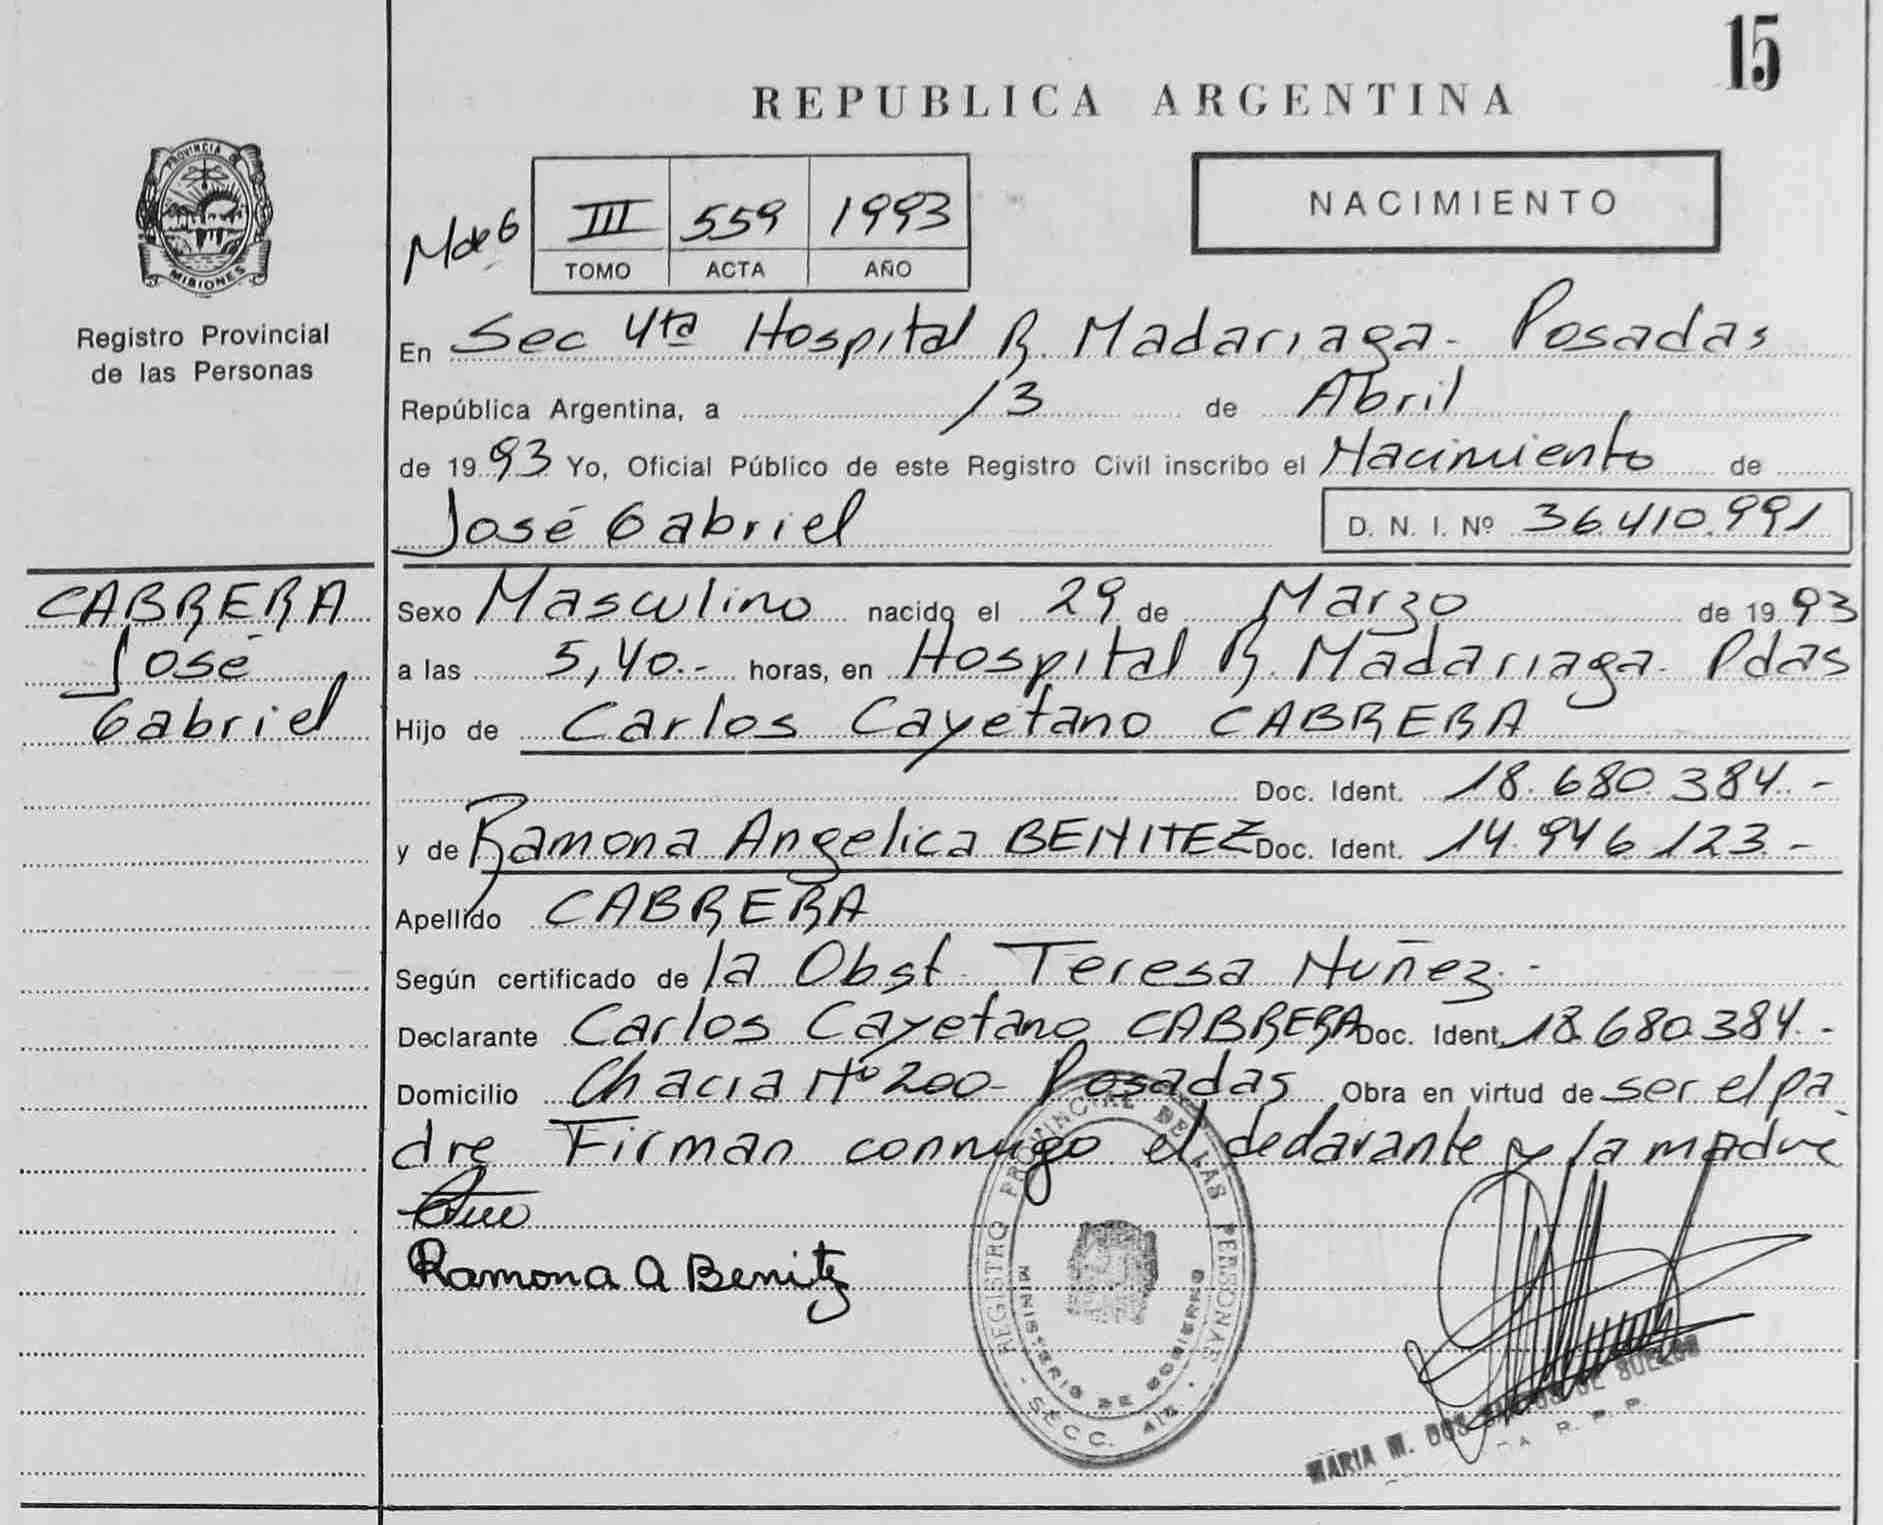 15
REPUBLICA ARGENTINA
PROVINCIA DE
MISIONES
Registro Provincial
de las Personas
III 559 1993
TOMO ACTA AÑO
NACIMIENTO
En Sec 4ta Hospital R. Madariaga - Posadas
República Argentina, a 13 de Abril
de 1993 Yo, Oficial Público de este Registro Civil inscribo el Nacimiento de
José Gabriel D. N. I. Nº 36.410.991
CABRERA
José
Gabriel
Sexo Masculino nacido el 29 de Marzo de 1993
a las 5,40.- horas, en Hospital R. Madariaga - Pdas
Hijo de Carlos Cayetano CABRERA
Doc. Ident. 18.680.384.-
y de Ramona Angelica BENITEZ Doc. Ident. 14.946.123.-
Apellido CABRERA
Según certificado de la Obst. Teresa Nuñez.-
Declarante Carlos Cayetano CABRERA Doc. Ident. 18.680.384.-
Domicilio Chacra Nº 200 - Posadas Obra en virtud de ser el pa
dre Firman conmigo el declarante y la madre
Ramona A Benitez
REGISTRO PROVINCIAL DE LAS PERSONAS
MINISTERIO DE GOBIERNO
SECC. 4ta
MARIA M. DOS DE
R. P. P.